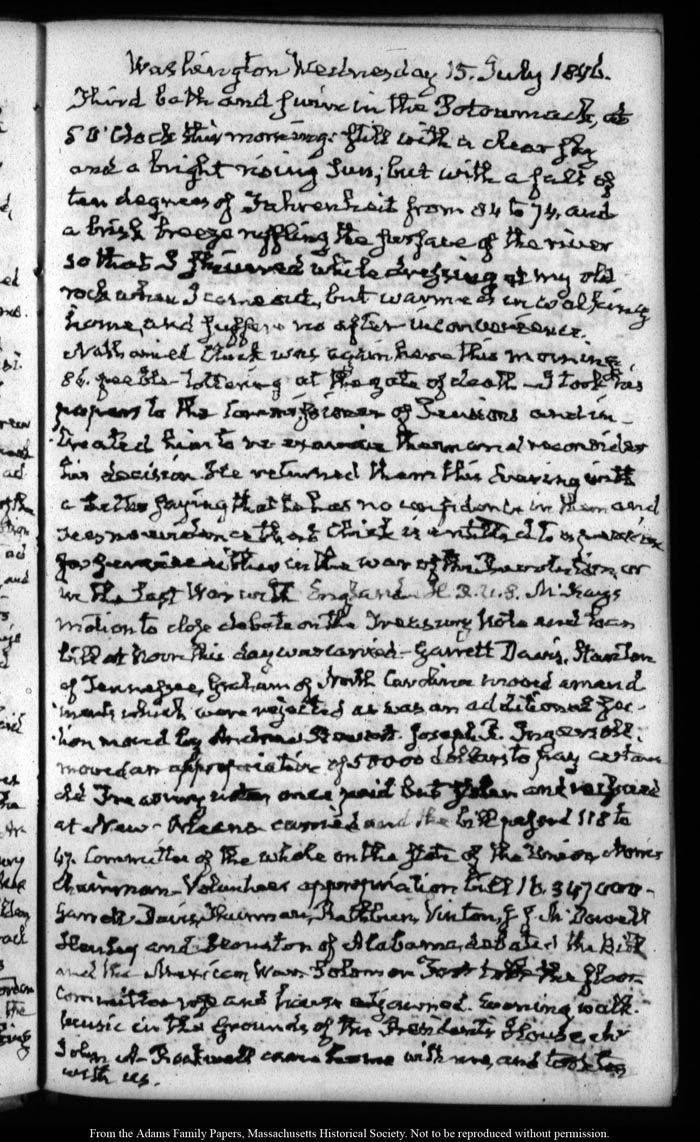 Washington Wednesday 15. July 1846.
Third bath and swim in the Potowmack, at
5 O'Clock this morning: still with a clear sky
and a bright rising Sun; but with a fall of
ten degrees of Fahrenheit from 84 to 74. and
a brisk breeze ruffling the surface of the river
so that I shivered while dressing at my old
rock when I came out, but warmed in walking
home, and suffer no after inconvenience.
Nathaniel Clark was again here this morning
86. feeble - tottering at the gate of death - I took his
papers to the Commissioner of Pensions and in-
treated him to re-examine them and reconsider
his decision He returned them this Evening with
a Letter saying that he has no confidence in them and
sees no evidence that Clark is entitled to a pension
for service either in the war of the Revolution, or
in the last War with England H.R.U.S. McKay's
motion to close debate on the Treasury Note and Loan
bill at Noon this day was carried - Garrett Davis, Stanton
of Tennessee, Graham of North Carolina moved amend
ments which were rejected as was an additional sec-
tion moved by Andrew Stewart. Joseph R. Ingersoll.
moved an appropriation of 50000 dollars to pay certain
old Treasury notes once paid but stolen and
at New-Orleans carried and the bill passed 118 to
47. Committee of the whole on the state of the Union Norris
Chairman - Volunteer appropriation bill
Garrett Davis, Thurman, Rathbun, Vinton, McDowell
and Houston of Alabama, debated the Bill
and the Mexican War. Solomon Foot took the floor
Committee rose and house adjourned. Evening walk.
Music in the Grounds of the President's House, Mr
John A. Rockwell came home with me, and took tea
with us.
From the Adams Family Papers, Massachusetts Historical Society. Not to be reproduced without permission.